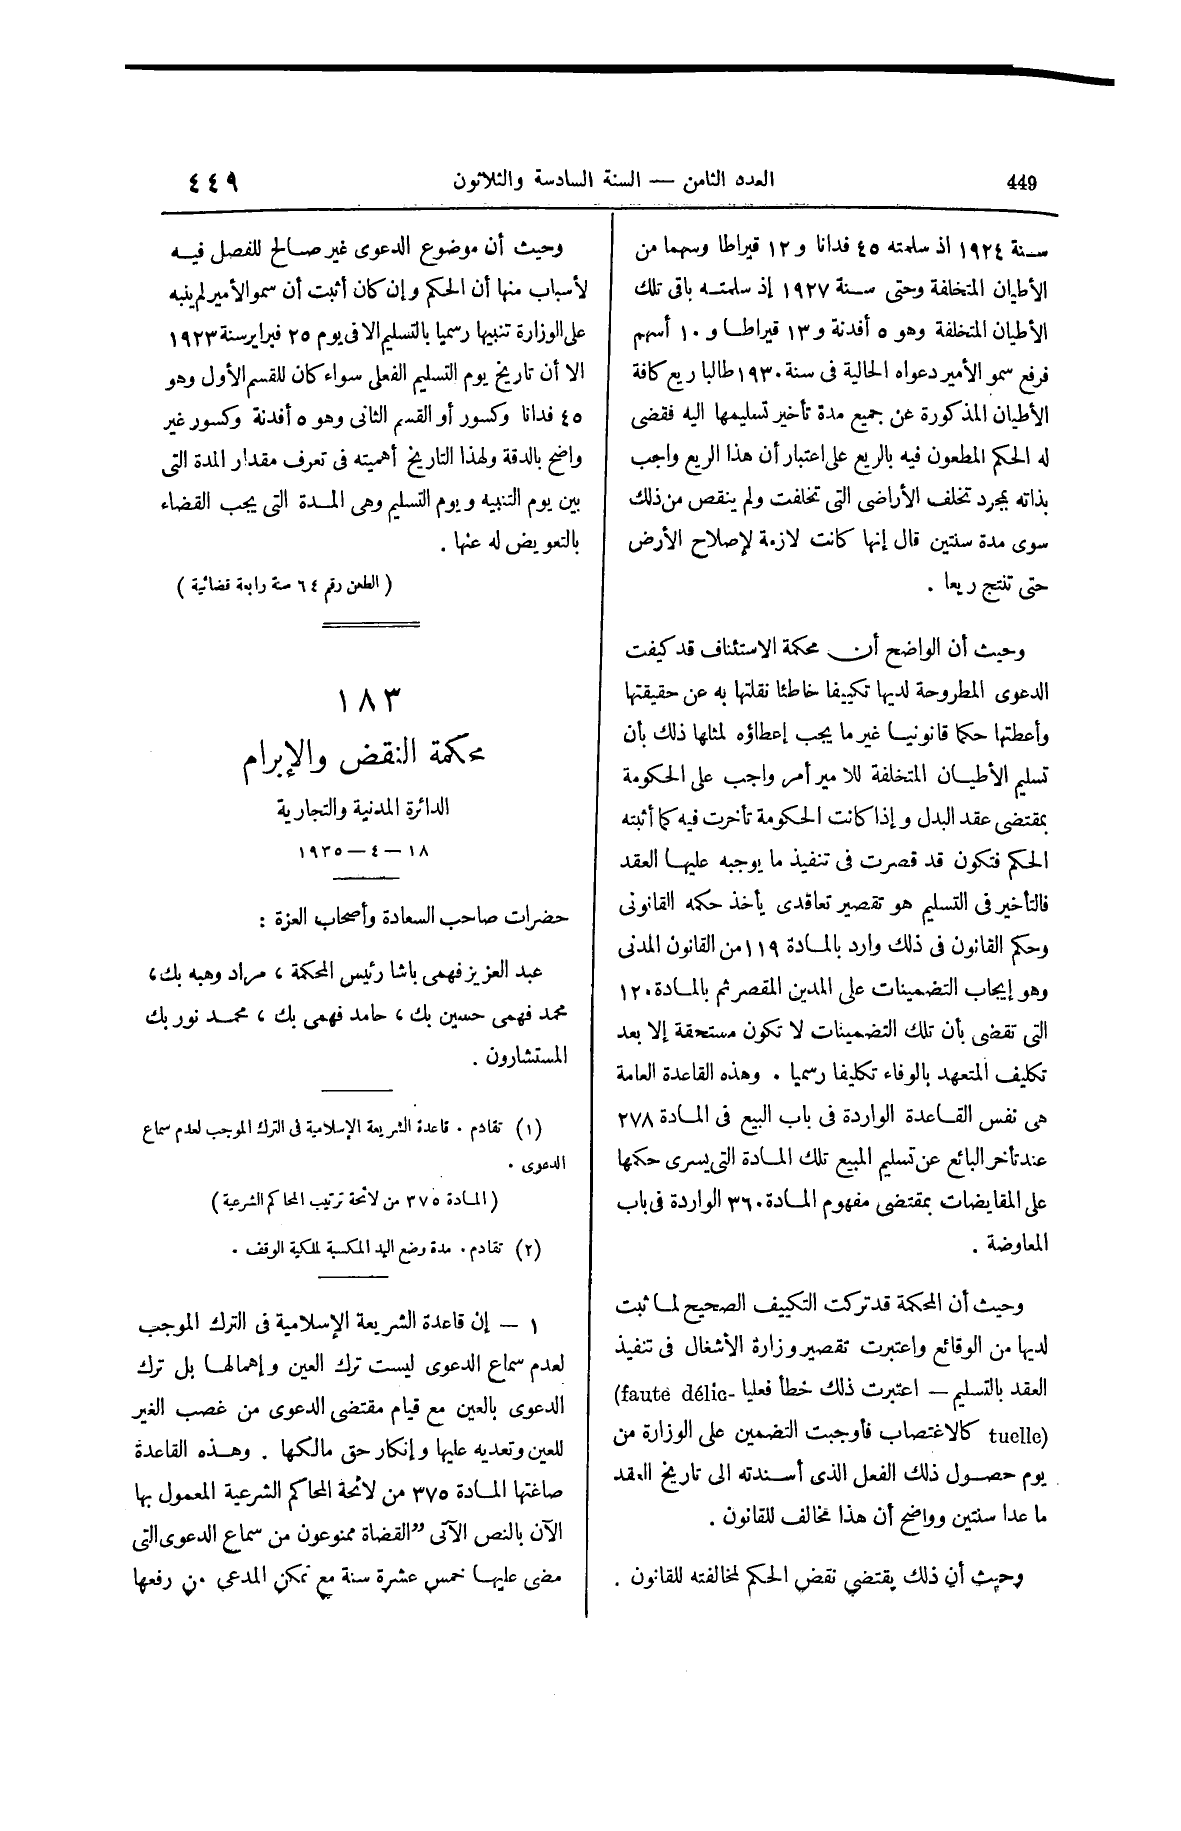 449 العدد الثامن — السنة السادسة والثلاثون ٤٤٩
سنة ١٩٢٤ اذ سلمته ٤٥ فدانا و ١٢ قيراطا وسهما من
الأطيان المتخلفة وحتى سنة ١٩٢٧ إذ سلمته باقى تلك
الأطيان المتخلفة وهو ٥ أفدنة و ١٣ قيراطا و ١٠ أسهم
فرفع سمو الأمير دعواه الحالية فى سنة ١٩٣٠ طالبا ريع كافة
الأطيان المذكورة عن جميع مدة تأخير تسليمها اليه فقضى
له الحكم المطعون فيه بالريع على اعتبار أن هذا الريع واجب
بذاته بمجرد تخلف الأراضى التى تخلفت ولم ينقص من ذلك
سوى مدة سنتين قال إنها كانت لازمة لإصلاح الأرض
حتى تنتج ريعا .
وحيث أن الواضح أن محكمة الاستئناف قد كيفت
الدعوى المطروحة لديها تكييفا خاطئا نقلتها به عن حقيقتها
وأعطتها حكما قانونيا غير ما يجب إعطاؤه لمثلها ذلك بأن
تسليم الأطيان المتخلفة للامير أمر واجب على الحكومة
بمقتضى عقد البدل وإذا كانت الحكومة تأخرت فيه كما أثبته
الحكم فتكون قد قصرت فى تنفيذ ما يوجبه عليها العقد
فالتأخير فى التسليم هو تقصير تعاقدى يأخذ حكمه القانونى
وحكم القانون فى ذلك وارد بالمادة ١١٩ من القانون المدنى
وهو إيجاب التضمينات على المدين المقصر ثم بالمادة ١٢٠
التى تقضى بأن تلك التضمينات لا تكون مستحقة إلا بعد
تكليف المتعهد بالوفاء تكليفا رسميا . وهذه القاعدة العامة
هى نفس القاعدة الواردة فى باب البيع فى المادة ٢٧٨
عند تأخر البائع عن تسليم المبيع تلك المادة التى يسرى حكمها
على المقايضات بمقتضى مفهوم المادة ٣٦٠ الواردة فى باب
المعاوضة .
وحيث أن المحكمة قد تركت التكييف الصحيح لما ثبت
لديها من الوقائع واعتبرت تقصير وزارة الأشغال فى تنفيذ
العقد بالتسليم — اعتبرت ذلك خطأ فعليا (faute délic-
tuelle) كالاغتصاب فأوجبت التضمين على الوزارة من
يوم حصول ذلك الفعل الذى أسندته الى تاريخ العقد
ما عدا سنتين وواضح أن هذا مخالف للقانون .
وحيث أن ذلك يقتضي نقض الحكم لمخالفته للقانون .
وحيث أن موضوع الدعوى غير صالح للفصل فيه
لأسباب منها أن الحكم وإن كان أثبت أن سمو الأمير لم ينبه
على الوزارة تنبيها رسميا بالتسليم الا فى يوم ٢٥ فبراير سنة ١٩٢٣
الا أن تاريخ يوم التسليم الفعلى سواء كان للقسم الأول وهو
٤٥ فدانا وكسور أو القسم الثانى وهو ٥ أفدنة وكسور غير
واضح بالدقة ولهذا التاريخ أهميته فى تعرف مقدار المدة التى
بين يوم التنبيه ويوم التسليم وهى المدة التى يجب القضاء
بالتعويض له عنها .
( الطعن رقم ٦٤ سنة رابعة قضائية )
١٨٣
محكمة النقض والإبرام
الدائرة المدنية والتجارية
١٨ — ٤ — ١٩٣٥
حضرات صاحب السعادة وأصحاب العزة :
عبد العزيز فهمى باشا رئيس المحكمة ، مراد وهبه بك ،
محمد فهمى حسين بك ، حامد فهمى بك ، محمد نور بك
المستشارون .
(١) تقادم . قاعدة الشريعة الإسلامية فى الترك الموجب لعدم سماع
الدعوى .
(المادة ٣٧٥ من لائحة ترتيب المحاكم الشرعية)
(٢) تقادم . مدة وضع اليد المكسبة لملكية الوقف .
١ — إن قاعدة الشريعة الإسلامية فى الترك الموجب
لعدم سماع الدعوى ليست ترك العين وإهمالها بل ترك
الدعوى بالعين مع قيام مقتضى الدعوى من غصب الغير
للعين وتعديه عليها وإنكار حق مالكها . وهذه القاعدة
صاغتها المادة ٣٧٥ من لائحة المحاكم الشرعية المعمول بها
الآن بالنص الآتى ”القضاة ممنوعون من سماع الدعوى التى
مضى عليها خمس عشرة سنة مع تمكن المدعي من رفعها